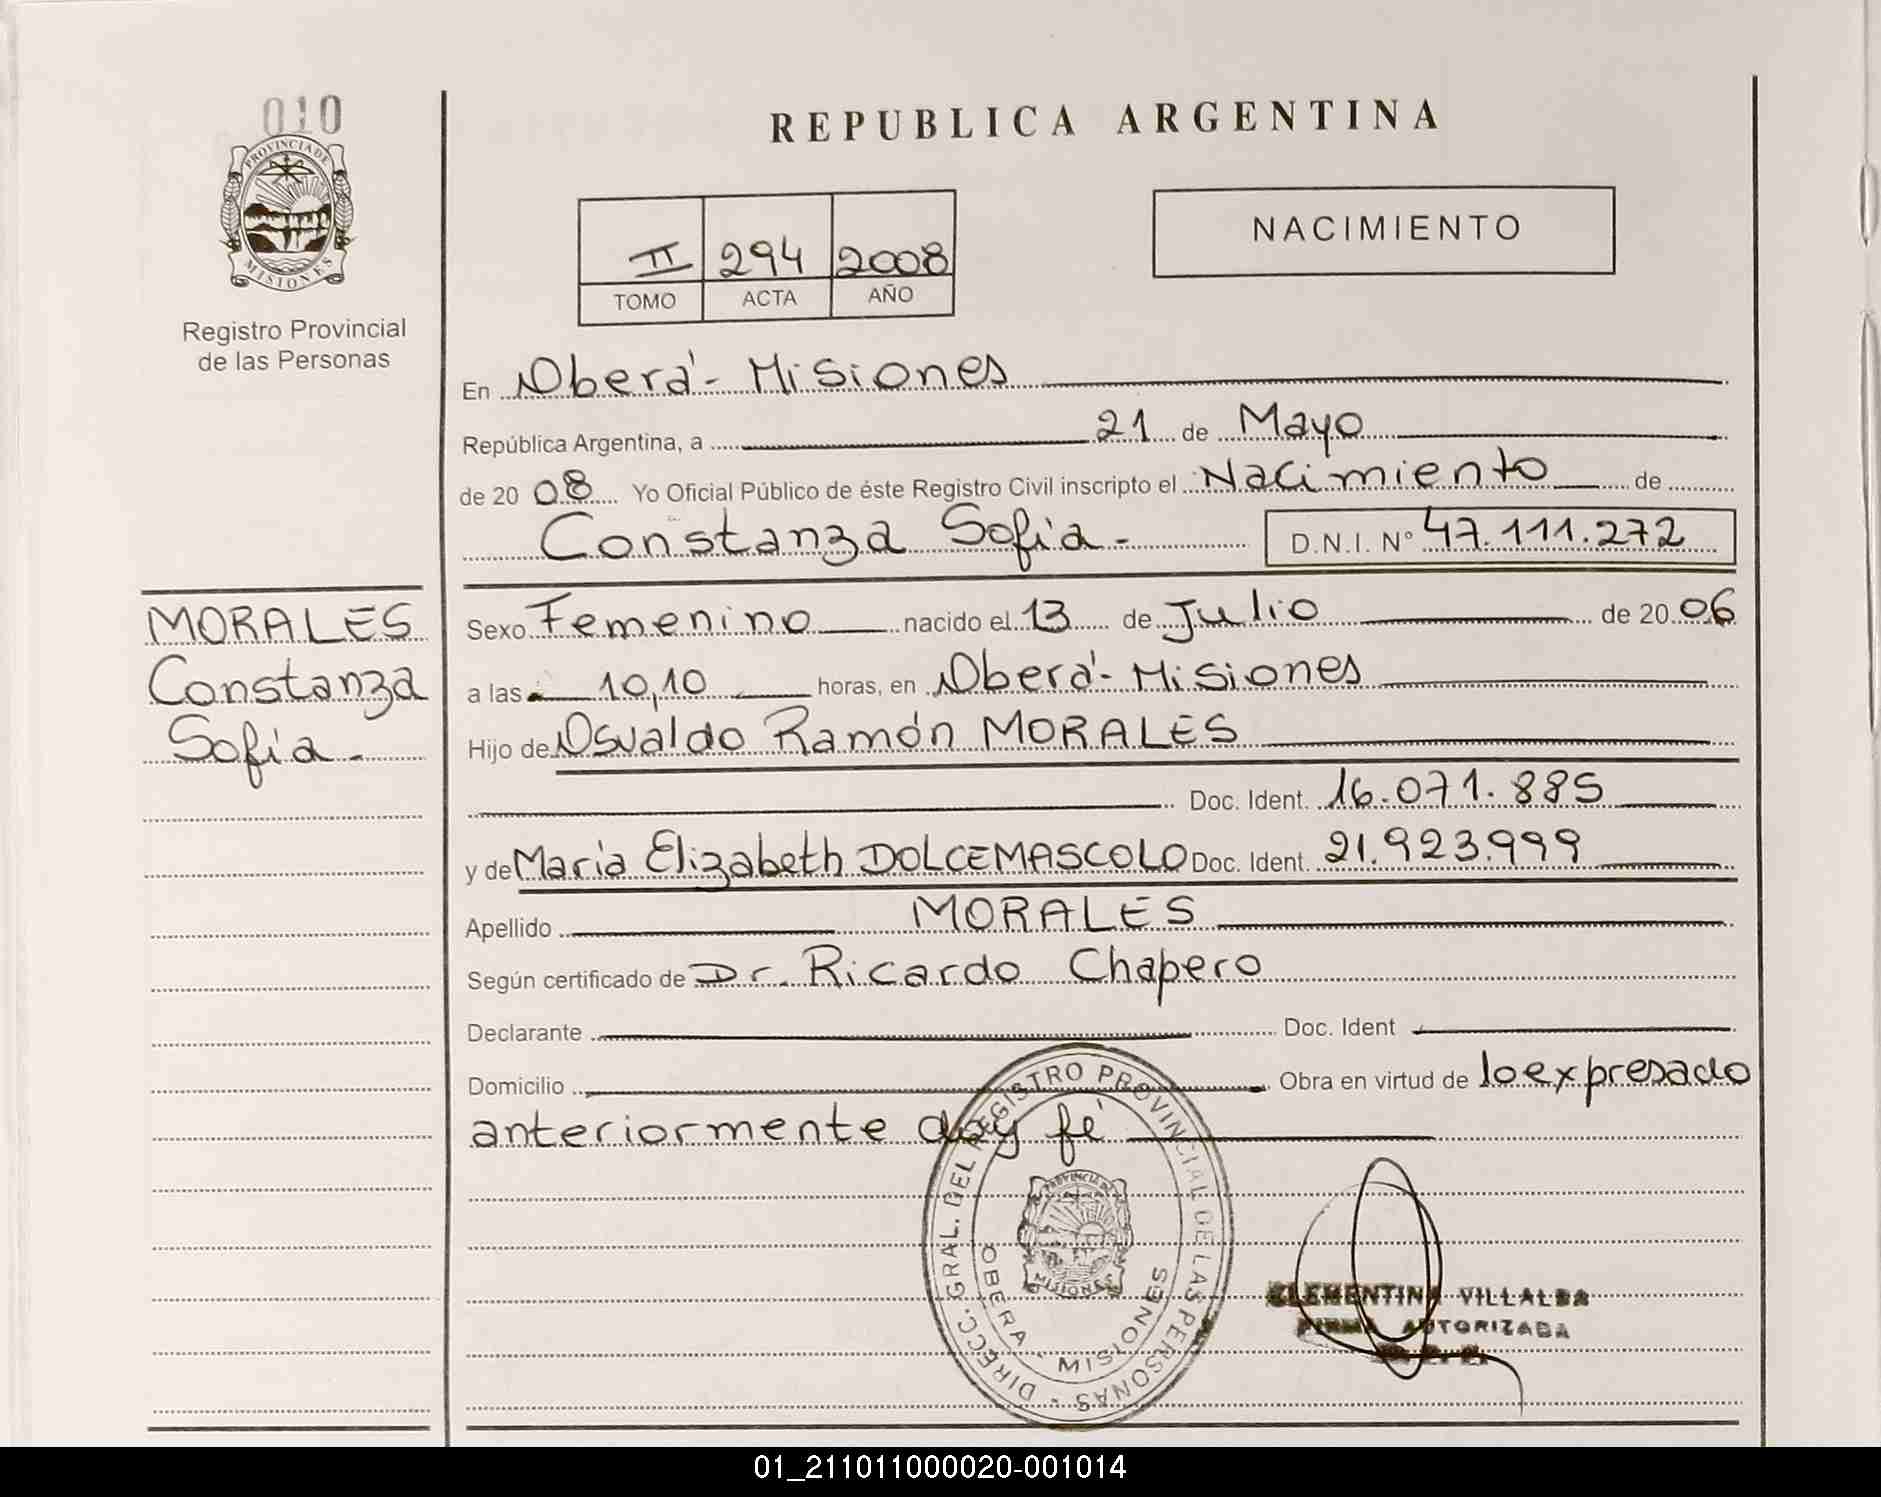 010
PROVINCIA DE
MISIONES
Registro Provincial
de las Personas
REPUBLICA ARGENTINA
II 294 2008
TOMO ACTA AÑO
NACIMIENTO
En Oberá - Misiones
República Argentina, a 21 de Mayo
de 20 08 Yo Oficial Público de éste Registro Civil inscripto el Nacimiento de
Constanza Sofía - D.N.I. Nº 47.111.272
MORALES
Constanza
Sofía -
Sexo Femenino nacido el 13 de Julio de 20 06
a las 10,10 horas, en Oberá - Misiones
Hijo de Osvaldo Ramón MORALES
Doc. Ident. 16.071.885
y de María Elizabeth DOLCEMASCOLO Doc. Ident. 21.923.999
Apellido MORALES
Según certificado de Dr. Ricardo Chapero
Declarante Doc. Ident
Domicilio Obra en virtud de lo expresado
anteriormente doy fé
DIRECC. GRAL. DEL REGISTRO PROVINCIAL DE LAS PERSONAS -
PROVINCIA DE
MISIONES
OBERA - MISIONES
CLEMENTINA VILLALBA
FIRMA AUTORIZADA
01_211011000020-001014